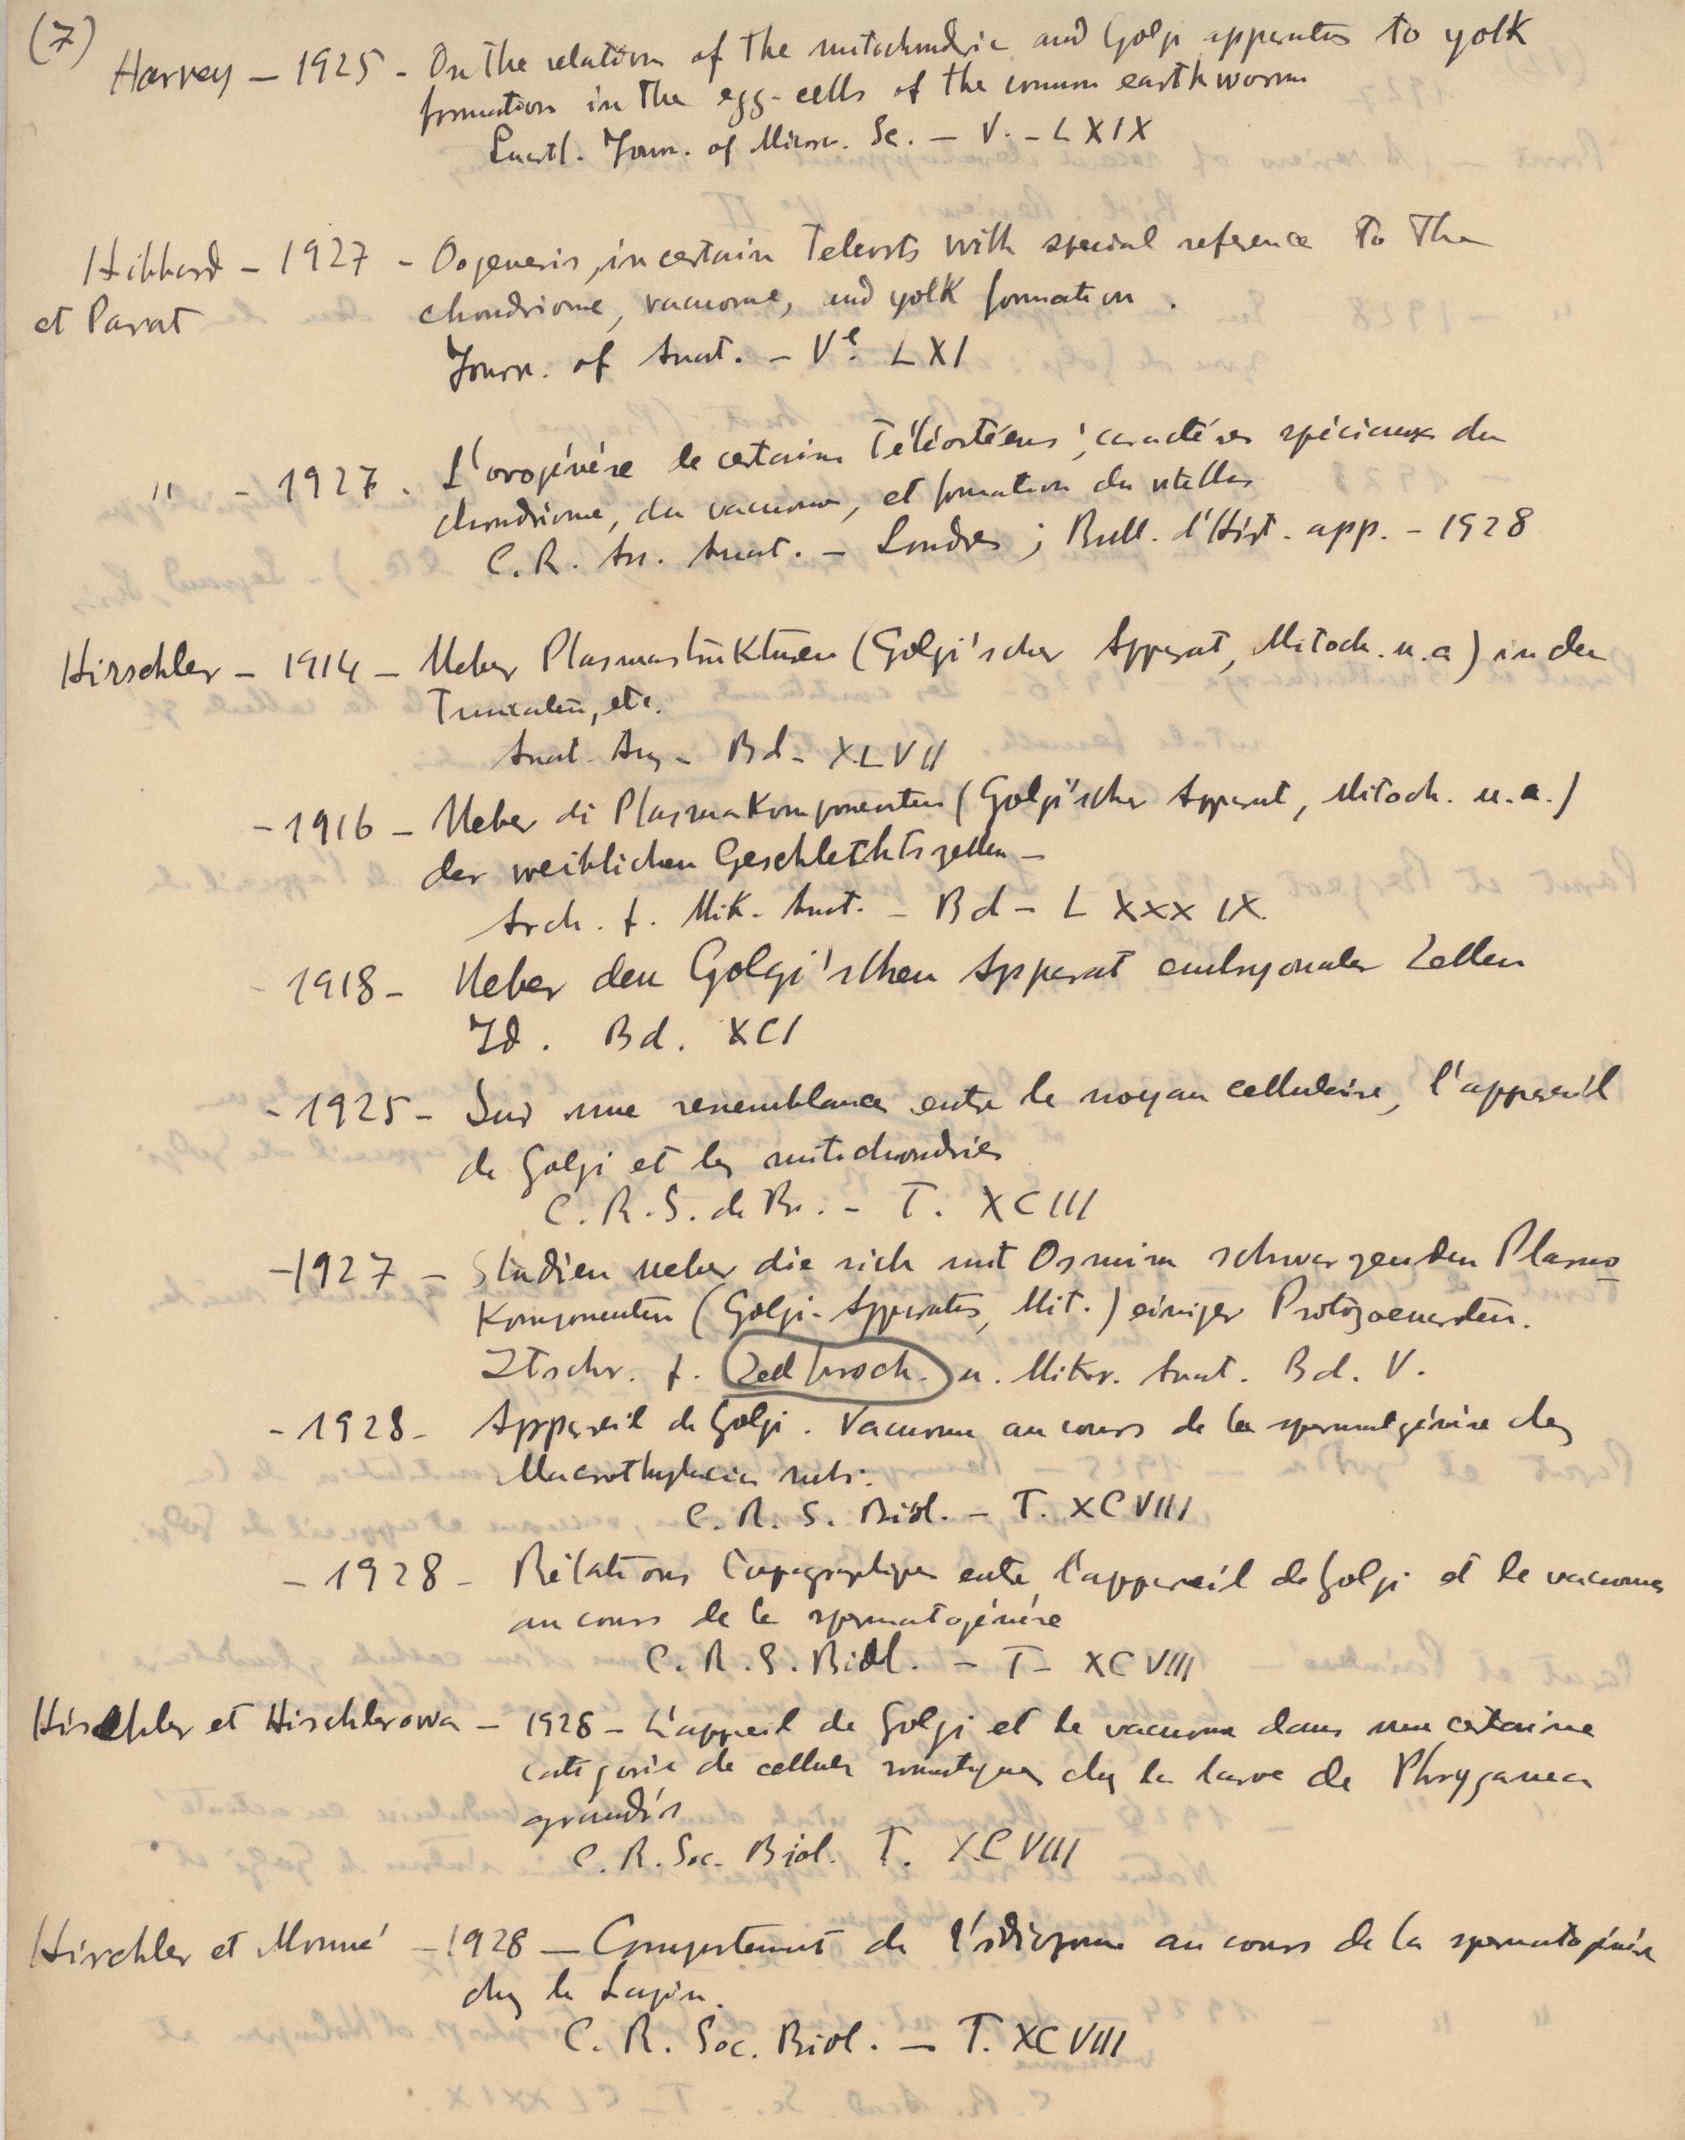 (7)
Harvey - 1925 - On the relation of the mitochondria and Golgi apparatus to yolk
formation in the egg-cells of the common earthworm
Quartl. Journ. of Micros. Sc. - V. - LXIX
Hibbard - 1927 - Oogenesis, in certain Teleosts with special reference to the
et Parat chondriome, vacuome, and yolk formation.
Journ. of Anat. - Vl. LXI
" - 1927 - L'ovogénèse de certains Téléostéens, caractères spéciaux du
chondriome, du vacuome, et formation du vitellus
C.R. As. Anat. - Londres ; Bull. d'Hist. app. - 1928
Hirschler - 1914 - Ueber Plasmastrukturen (Golgi'scher Apparat, Mitoch. u.a) in den
Tunicaten, etc.
Anat. Anz - Bd - XLVII
- 1916 - Ueber di Plasmakomponenten (Golgi'scher Apparat, Mitoch. u.a.)
der weiblichen Geschlechtszellen -
Arch. f. Mik. Anat. - Bd - LXXXIX
- 1918 - Ueber den Golgi'schen Apparat embryonaler Zellen
Id. Bd. XCI
- 1925 - Sur une resemblance entre le noyau cellulaire, l'appareil
de Golgi et les mitochondries
C.R.S. de Bi. - T. XCIII
- 1927 - Studien ueber die sich mit Osmium schwarzenden Plasmo
Komponenten (Golgi-Apparates, Mit.) einiger Protozoenarten.
Ztschr. f. Zellforsch. u. Mikr. Anat. Bd. V.
- 1928 - Appareil de Golgi. Vacuome au cours de la spermatogénèse chez
Macrothylacia rubi.
C.R.S. Biol. - T. XCVIII
- 1928 - Rélations topographiques entre l'appareil de Golgi et le vacuome
au cours de la spermatogénèse
C.R.S. Biol. - T - XCVIII
Hirschler et Hirschlerowa - 1928 - L'appareil de Golgi et le vacuome dans une certaine
catégorie de cellules somatiques chez la larve de Phryganea
grandis
C.R. Soc. Biol. T. XCVIII
Hirschler et Monné - 1928 - Comportement de l'idiozome au cours de la spermatogénèse
chez le Lapin.
C.R. Soc. Biol. - T. XCVIII